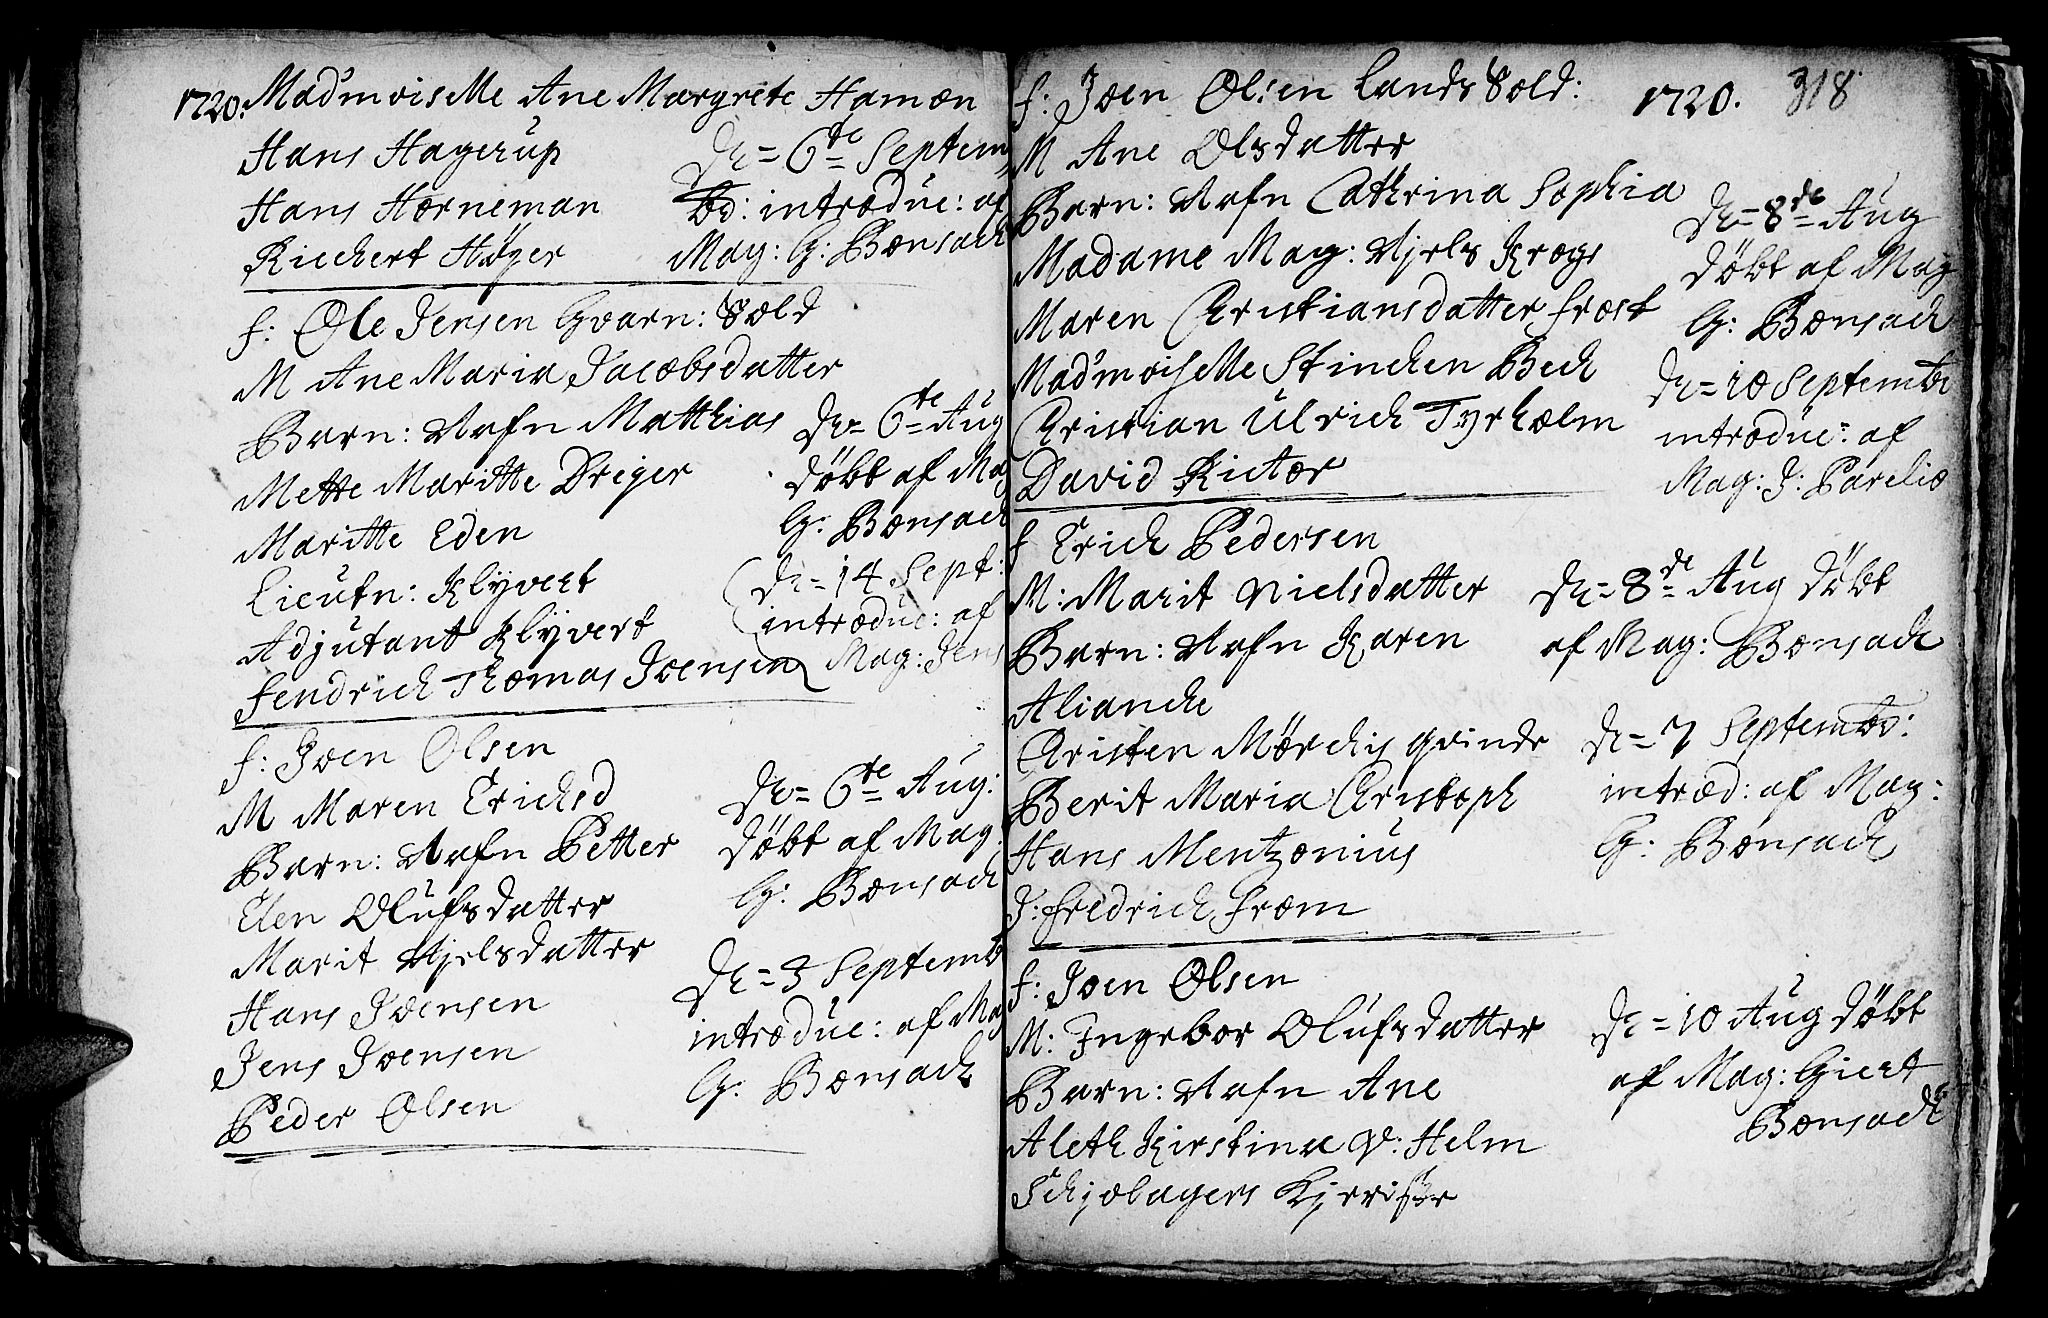 1720. Madmoiselle Ane Margrete Hamon
Hans Hagerup
Hans Horneman
Riechert Høyer
De = 6te Septem
bd: introduc: af
Mag: G: Bonsach
f: Ole Jensen Gvarn: Sold
M Ane Maria Jacobsdatter
Barn: Nafn Matthias
Mette Maritte Dreyer
Maritte Eden
Lieutn: Klyvert
Adjutant Klyvert
Fendrich Thomas Joensen
De = 6te Aug
døbt af Ma
G: Bonsach
De = 14 Sept:
introduc: af
Mag: Jens
f: Joen Olsen
M Maren Erichsd
Barn: Nafn Petter
Elen Olufsdatter
Marit Njelsdatter
Hans Joensen
Jens Joensen
Peder Olsen
De = 6te Aug:
døbt af Mag:
G: Bonsach
De = 3 Septemb
introduc: af Mag
G: Bonsach
1720. 318
f: Joen Olsen Lands Sold:
M Ane Olsdatter
Barn: Nafn Cathrina Sophia
Madame Mag: Njels Krogs
Maren Christiansdatter Frost
Madmoiselle Stinchen Bech
Christian Ulrich Tyrholm
David Rictor
De = 8de Aug
døbt af Mag
G: Bonsach
De = 10 Septembr
introduc: af
Mag: J: Parelio
f Erich Pedersen
M: Marit Nielsdatter
Barn: Nafn Karen
Alianche
Christen Mørchis qvinde
Berit Maria Christoph
Hans Mentzonius
J: Fredrich From
De = 8de Aug døbt
af Mag: Bonsach
De = 7 Septembr:
introd: af Mag:
G: Bonsach
f: Joen Olsen
M: Ingebor Olufsdatter
Barn: Nafn Ane
Aleth Kirstina V: Helm
Kjeriste
De = 10 Aug døbt
af Mag: Giert
Bonsach